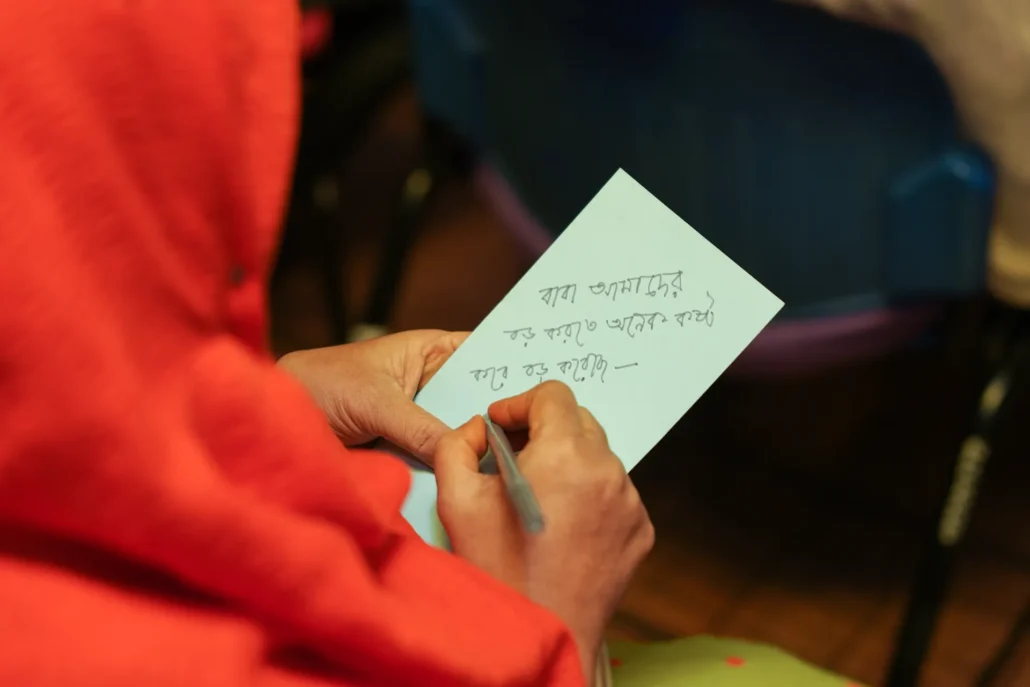 বাবা আমাদের
বড় করতে অনেক কষ্ট
করে বড় করেছে —